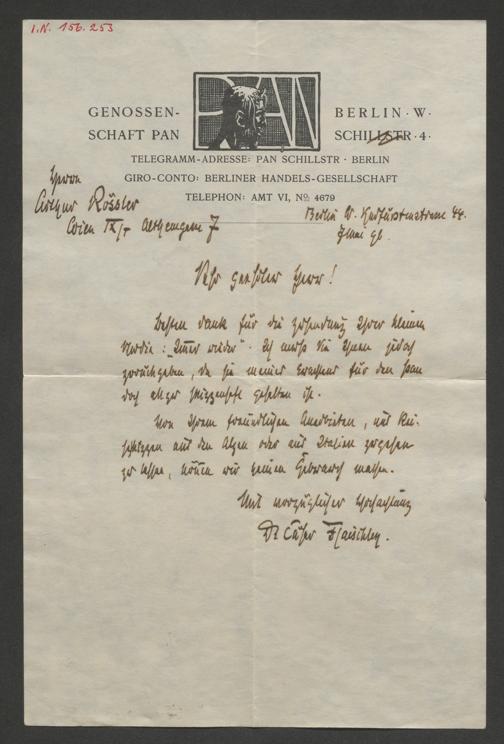 I.N. 156.253
PAN
GENOSSEN-
SCHAFT PAN
BERLIN · W ·
SCHILLSTR · 4 ·
TELEGRAMM-ADRESSE: PAN SCHILLSTR · BERLIN
GIRO-CONTO: BERLINER HANDELS-GESELLSCHAFT
TELEPHON: AMT VI, No. 4679
Herrn
Arthur Rössler
Wien IX/1 7
Berlin W. Kurfürstenstrasse 44.
7 Mai 96.
Sehr geehrter Herr!
Besten Dank für die Zusendung Ihrer kleinen
Studie: „Immer wieder". Ich muss sie Ihnen jedoch
zurückgeben, da sie meines Erachtens für den Pan
doch allzu skizzenhaft gehalten ist.
Von Ihrem freundlichen Anerbieten, uns Rei-
seskizzen aus den Alpen oder aus Italien zugehen
zu lassen, können wir keinen Gebrauch machen.
Mit vorzüglicher Hochachtung
Dr Cäsar Flaischlen.